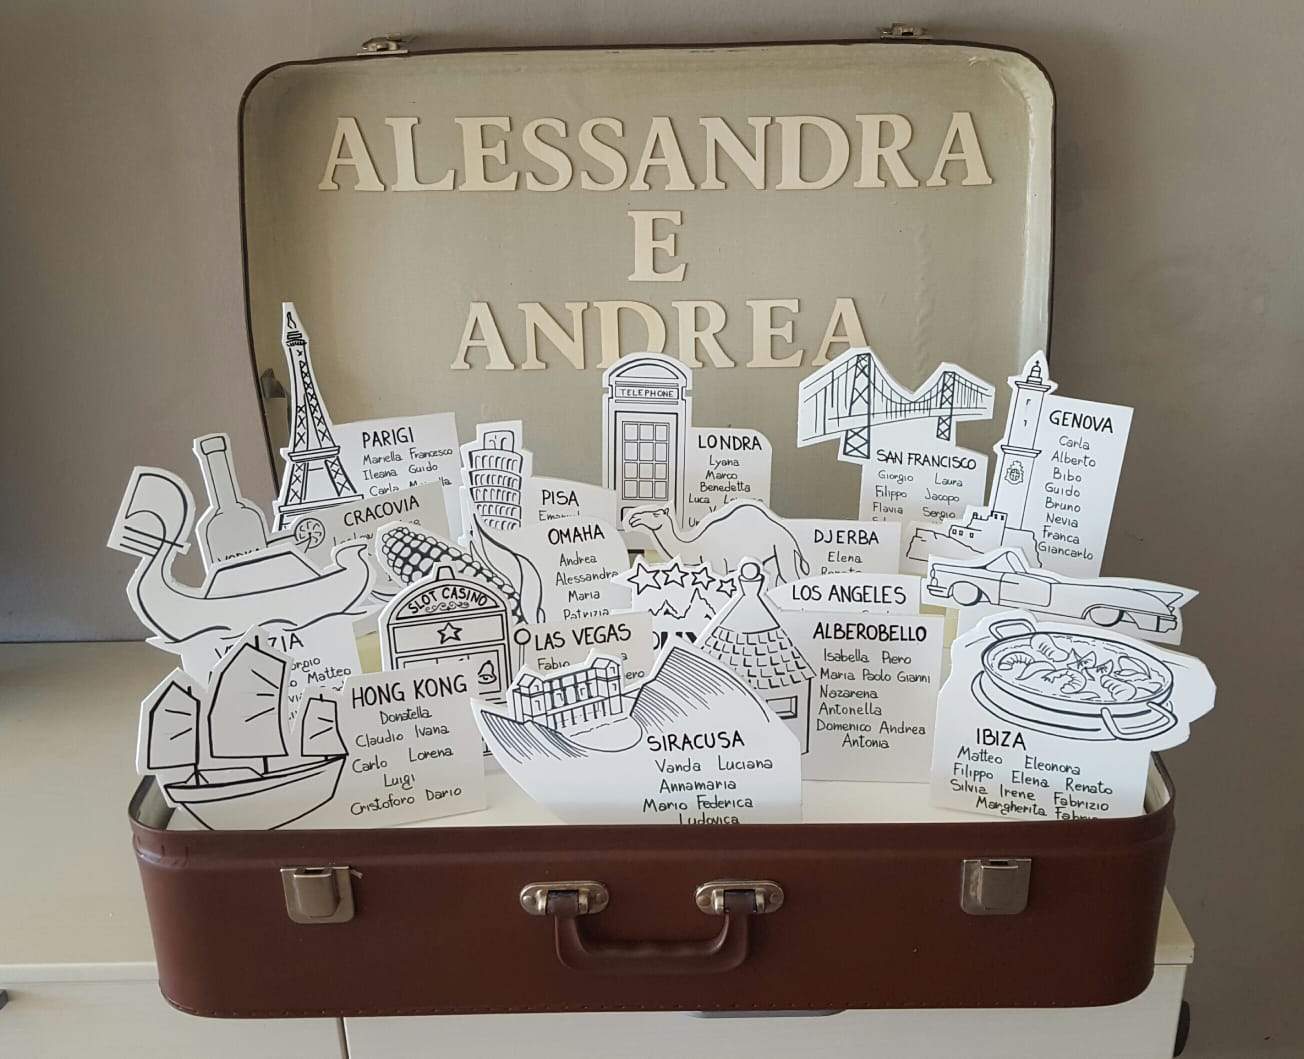 ALESSANDRA
E
ANDREA
PARIGI
Mariella Francesco
Ileana Guido
Carla
CRACOVIA
PISA
TELEPHONE
LONDRA
Lyana
Marco
Benedetta
Luca
SAN FRANCISCO
Giorgio Laura
Filippo Jacopo
Flavia Sergio
GENOVA
Carla
Alberto
Bibo
Guido
Bruno
Nevia
Franca
Giancarlo
OMAHA
Andrea
Alessandra
Maria
Patrizia
DJERBA
Elena
SLOT CASINO
LAS VEGAS
LOS ANGELES
Matteo
HONG KONG
Donatella
Claudio Ivana
Carlo Lorena
Luigi
Cristoforo Dario
SIRACUSA
Vanda Luciana
Annamaria
Mario Federica
Ludovica
ALBEROBELLO
Isabella Piero
Maria Paolo Gianni
Nazarena
Antonella
Domenico Andrea
Antonia
IBIZA
Matteo Eleonora
Filippo Elena Renato
Silvia Irene Fabrizio
Margherita